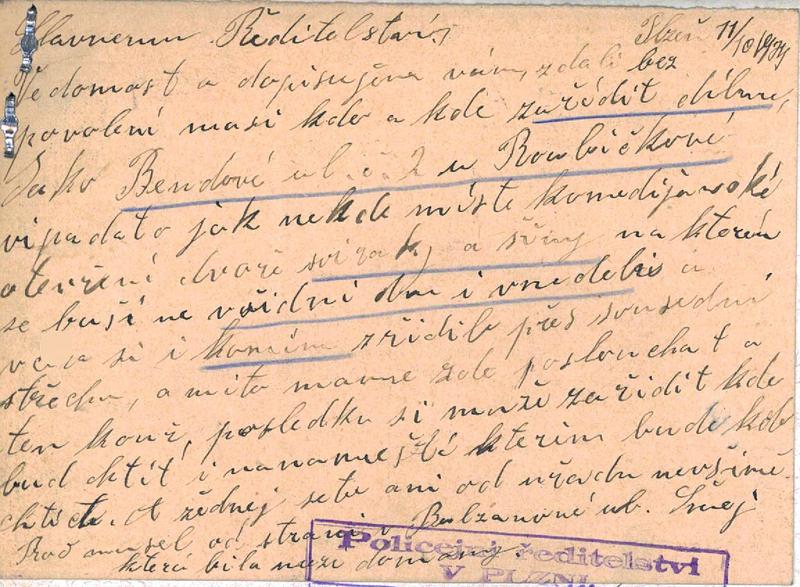 Hlavnemu Ředitelství,
Plzeň 11/10 1934
Vědomost a dopisujena vám, zdali bez
povolení masi kdo a kde zařídit dílnu,
Jako Bendové ul. č. 2 u Roubíčkové
vipadato jak nekde míste komedijanské
otevření dvoře svirak, a síny na kterén
se buší ne všidní dni i vnedelis a
si i komín zřídile přes sousední
střechu, a mito mame zde poslouchat a
ten kouř, posledku si muže zařídit kde
bud chtít i nanamešti kterim bude kdo
chtít. A žednej sebe ani od uřadu nevšimě
Proč musel od strani v Bolzanové ul. Smej
která bila naze domazny.
Policejní ředitelství
V PLZNI